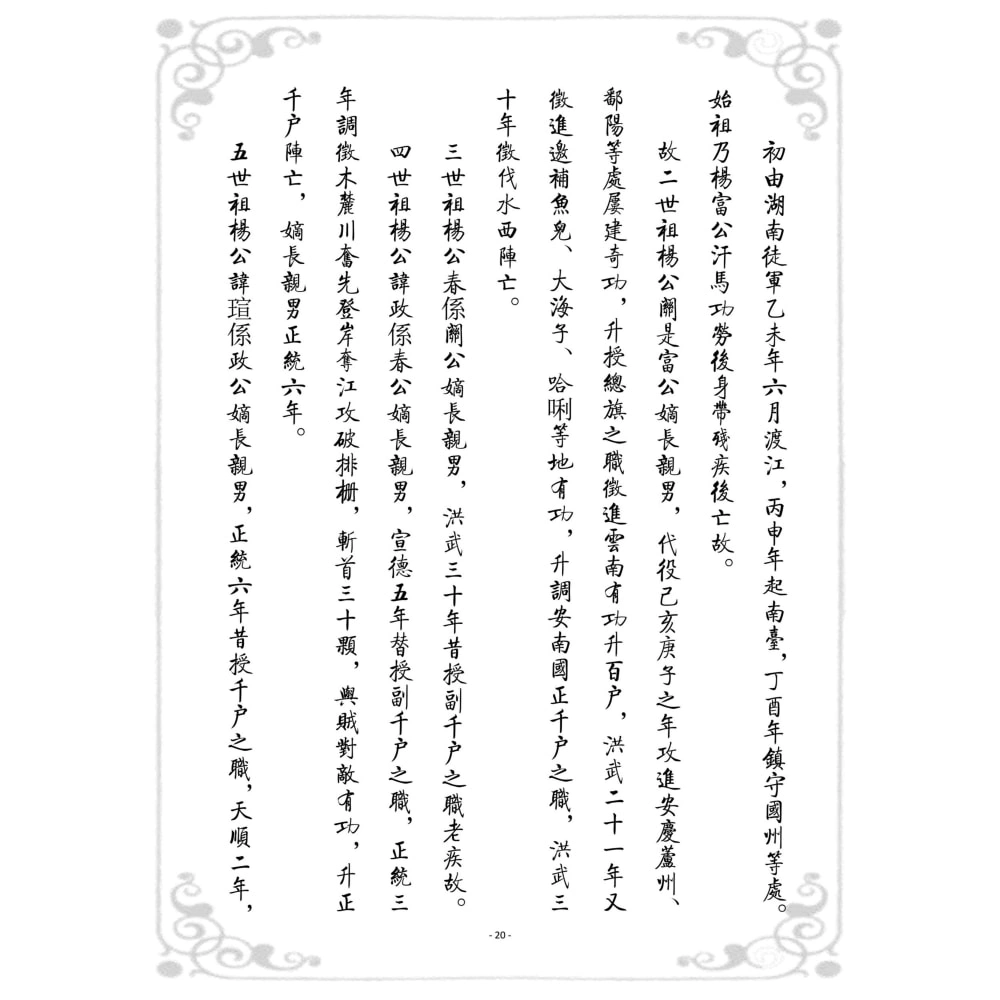 初由湖南徒軍乙未年六月渡江，丙申年起南臺，丁酉年鎮守國州等處。
始祖乃楊富公汗馬功勞後身帶殘疾後亡故。
故二世祖楊公關是富公嫡長親男，代役己亥庚子之年攻進安慶蘆州、
鄱陽等處屢建奇功，升授總旗之職徵進雲南有功升百户，洪武二十一年又
徵進邊補魚兒、大海子、哈唎等地有功，升調安南國正千户之職，洪武三
十年徵伐水西陣亡。
三世祖楊公春係關公嫡長親男，洪武三十年昔授副千户之職老疾故。
四世祖楊公諱政係春公嫡長親男，宣德五年替授副千户之職，正統三
年調徵木麓川奮先登岸奪江攻破排栅，斬首三十顆，與賊對敵有功，升正
千户陣亡，嫡長親男正統六年。
五世祖楊公諱瑄係政公嫡長親男，正統六年昔授千户之職，天順二年，
- 20 -